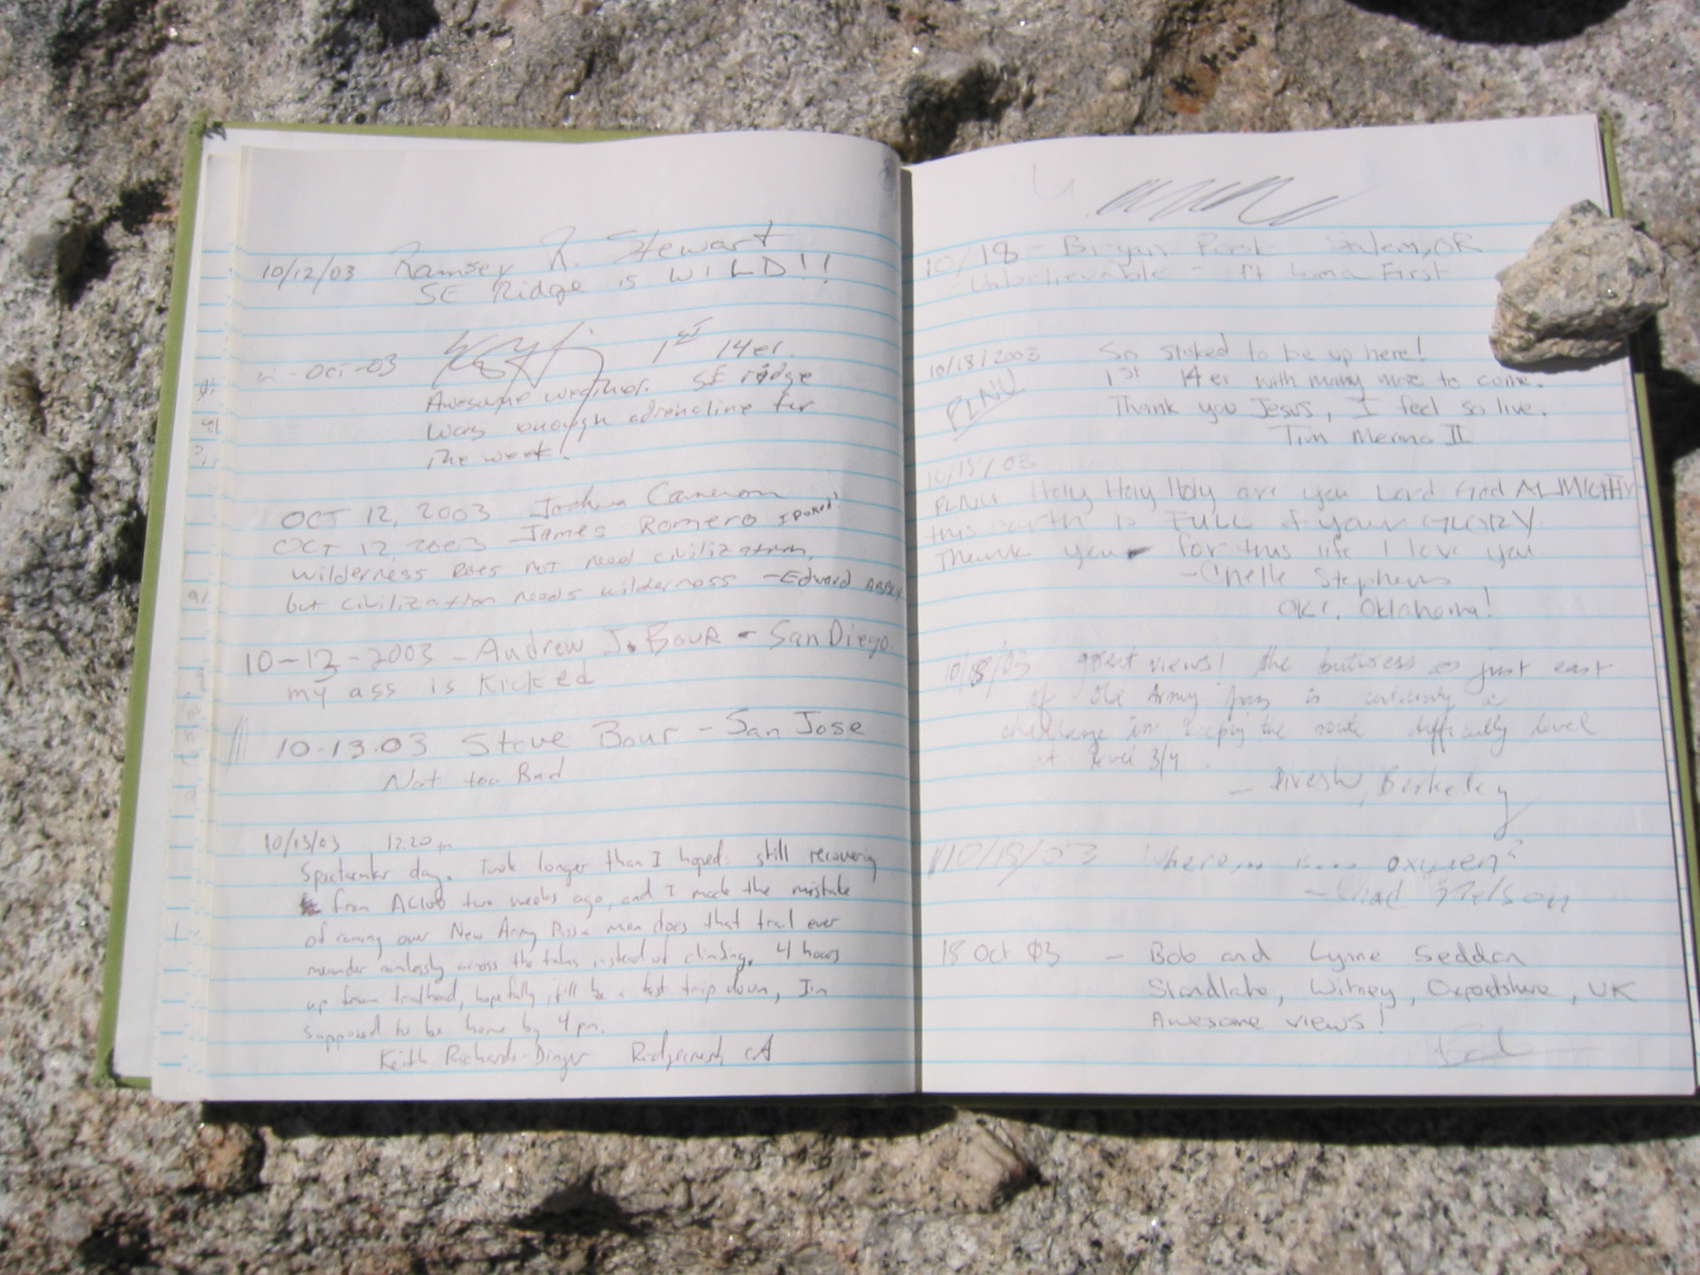 10/12/03 Ramsey R. Stewart
SE Ridge is WILD!!
-Oct-03 1st 14er.
Awesome weather. SE ridge
was enough adrenaline for
the week!
OCT 12, 2003 Joshua Cameron
OCT 12, 2003 James Romero
wilderness does not need civilization,
but civilization needs wilderness -Edward Abbey
10-13-2003 - Andrew J. Bour - San Diego
my ass is kicked
10-13-03 Steve Bour - San Jose
Not too Bad
10/13/03 12:20 pm
Spectacular day. Took longer than I hoped: still recovering
from AC100 two weeks ago, and I made the mistake
of coming over New Army Pass man does that trail ever
meander aimlessly across the talus instead of climbing. 4 hours
up from trailhead, hopefully it'll be a fast trip down, I'm
supposed to be home by 4 pm.
Keith Richards-Dinger Ridgecrest, CA
10/18 - Bryan Salem, OR
Unbelievable - First
10/18/2003 So stoked to be up here!
PLNU 1st 14er with many more to come.
Thank you Jesus, I feel so live.
Tim Merino II
10/18/03
PLNU Holy Holy Holy are you Lord God ALMIGHTY
this earth is FULL of your GLORY
Thank you for this life I love you
Stephens
OKC, Oklahoma!
10/18/03 great views! the buttress just east
of the Army Pass is certainly a
challenge in keeping the route difficulty level
at level 3/4.
- Divesh, Berkeley
10/18/03 Where... is.... oxygen?
- Chad Nelson
18 Oct 03 - Bob and Lynne Seddon
Standlake, Witney, Oxfordshire, UK
Awesome views!